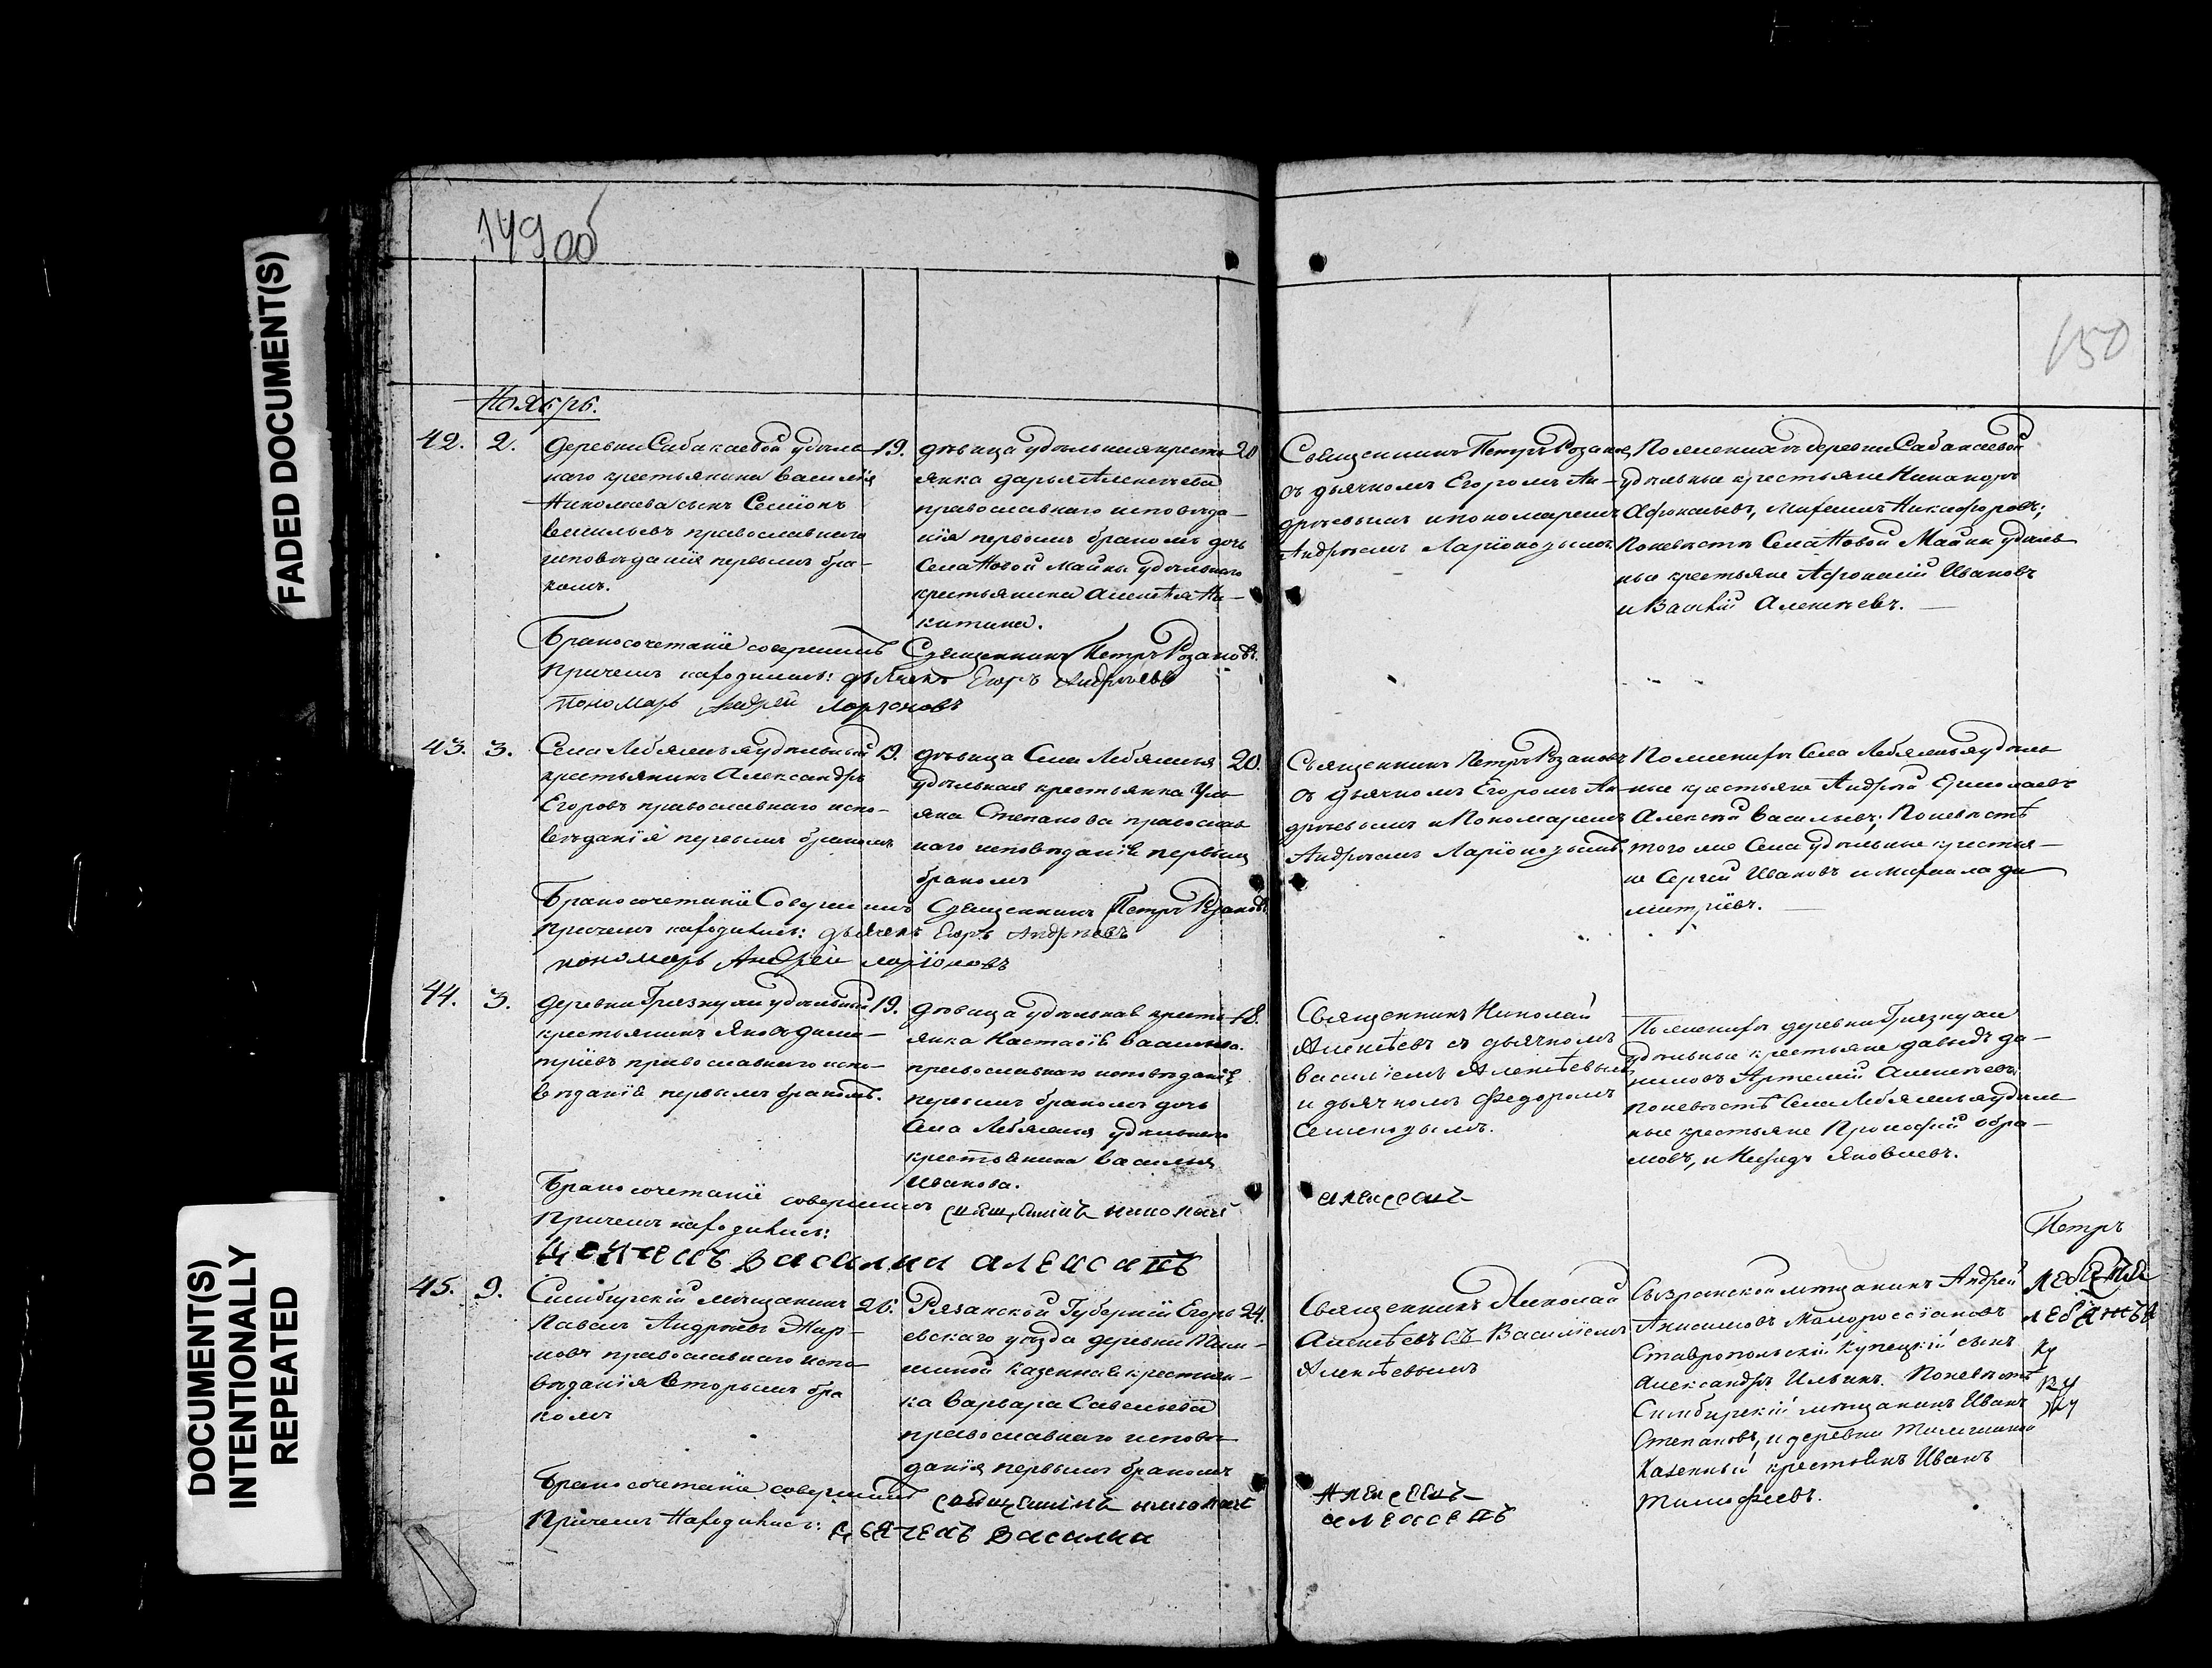 FADED DOCUMENT(S)
DOCUMENT(S)
INTENTIONALLY
REPEATED
149об
150
Ноябрь.
42. 2.
деревни Сабакаевой удѣль-
наго крестьянина Василія
Николаева сынъ Семіонъ
Васильевъ православнаго
исповѣданія первымъ бра-
комъ.
19.
дѣвица удѣльная кресть-
янка дарья Алексѣева
православнаго исповѣда-
нія первымъ бракомъ дочь
Села Новой Майны удѣльнаго
крестьянина Алексѣя Ни-
китина.
20
Священникъ Петръ Розановъ
съ дьячкомъ Егоромъ Ан-
дрѣевымъ и пономаремъ
Андрѣемъ Ларіоновымъ
По женихѣ деревни Сабакаевой
удѣльные крестьяне Никаноръ
Афонасьевъ, Никифоровъ;
По невѣстѣ Села Новой Майны удѣль-
ные крестьяне Афонасій Ивановъ
и Василій Алексѣевъ.
Бракосочетаніе совершилъ Священникъ Петръ Розановъ.
Причемъ находились: дьячекъ Егоръ Андрѣевъ
пономарь Андрей Ларіоновъ
43. 3.
Села Лебяжья удѣльный
крестьянинъ Александръ
Егоровъ православнаго испо-
вѣданія первымъ бракомъ
19.
дѣвица Села Лебяжья
удѣльная крестьянка Уль-
яна Степанова православ-
наго исповѣданія первымъ
бракомъ
20.
Священникъ Петръ Розановъ
съ дьячкомъ Егоромъ Ан-
дрѣевымъ и Пономаремъ
Андрѣемъ Ларіоновымъ
По женихѣ Села Лебяжья удѣль-
ные крестьяне Андрей Ермолаевъ
Алексѣй Васильевъ; По невѣстѣ
того же Села удѣльные крестья-
не Сергѣй Ивановъ и Михаила Ди-
митріевъ.
Бракосочетаніе Совершилъ Священникъ Петръ Розановъ
Причемъ находились: дьячекъ Егоръ Андрѣевъ
пономарь Андрей Ларіоновъ
44. 3.
деревни Грязнухи удѣльный
крестьянинъ Яковъ дими-
тріевъ православнаго испо-
вѣданія первымъ бракомъ.
19.
дѣвица удѣльная кресть-
янка Настасія Васильева.
православнаго исповѣданія
первымъ бракомъ дочь
Села Лебяжья удѣльнаго
крестьянина Василья
Иванова.
18.
Священникъ Николай
Алексѣевъ съ дьячкомъ
Василіемъ Алексѣевымъ
и дьячкомъ Федоромъ
Семеновымъ.
По женихѣ деревни Грязнухи
удѣльные крестьяне давыдъ да-
ниловъ Артемій Алексѣевъ;
по невѣстѣ Села Лебяжья удѣль-
ные крестьяне Прокофій Абра-
мовъ, и Яковлевъ.
Бракосочетаніе совершилъ священникъ николай
алексеевъ
Причемъ находились:
дьячекъ Василии алексеевъ
45. 9.
Симбирскій мѣщанинъ
Павелъ Андрѣевъ Жар-
ковъ православнаго испо-
вѣданія вторымъ бра
комъ
26.
Рязанской Губерніи Егорь-
евскаго уѣзда деревни
казенная крестьян-
ка Варвара Савельева
православнаго исповѣ-
данія первымъ бракомъ
24.
Священникъ Николай
Алексѣевъ съ Василіемъ
Алексѣевымъ
Сызранской мѣщанинъ Андрей
Анисимовъ Малороссіановъ
Ставропольскій купецкій сынъ
Александръ Ильинъ. По невѣстѣ
Симбирскій мѣщанинъ Иванъ
Степановъ, и деревни
Казенный крестьянинъ Иванъ
Тимофѣевъ.
Петръ
Лебяжья
лебяжья
Ку
Ку
Жу
Бракосочетаніе совершилъ священникъ николай
Алексеевъ
Причемъ Находились: дьячекъ Василии
алексеевъ